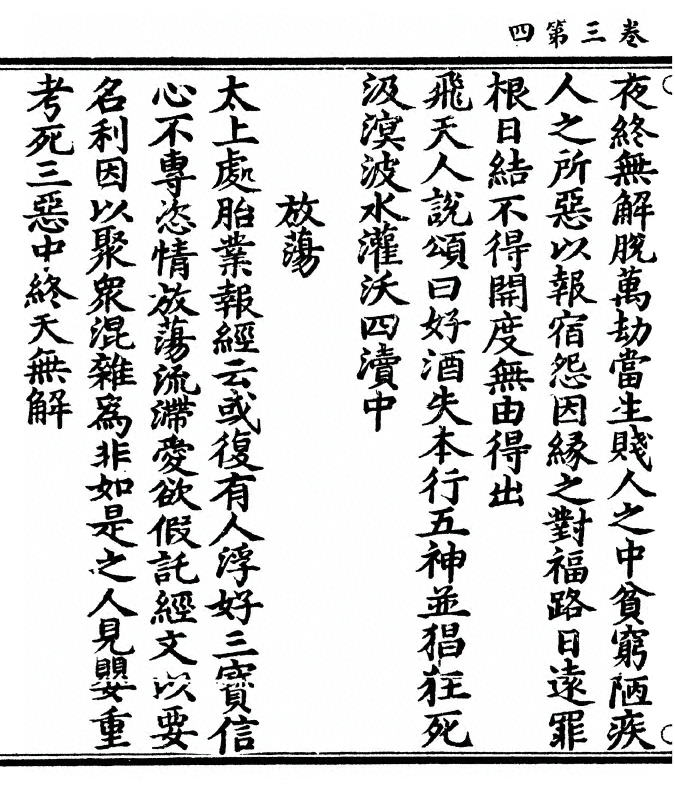 卷三第四
夜終無解脫萬劫當生賤人之中貧窮陋疾
人之所惡以報宿怨因緣之對福路日遠罪
根日結不得開度無由得出
飛天人說頌曰好酒失本行五神並猖狂死
汲溟波水灌沃四瀆中
放蕩
太上處胎業報經云或復有人浮好三寶信
心不專恣情放蕩流滯愛欲假託經文以要
名利因以聚眾混雜為非如是之人見嬰重
考死三惡中終天無解